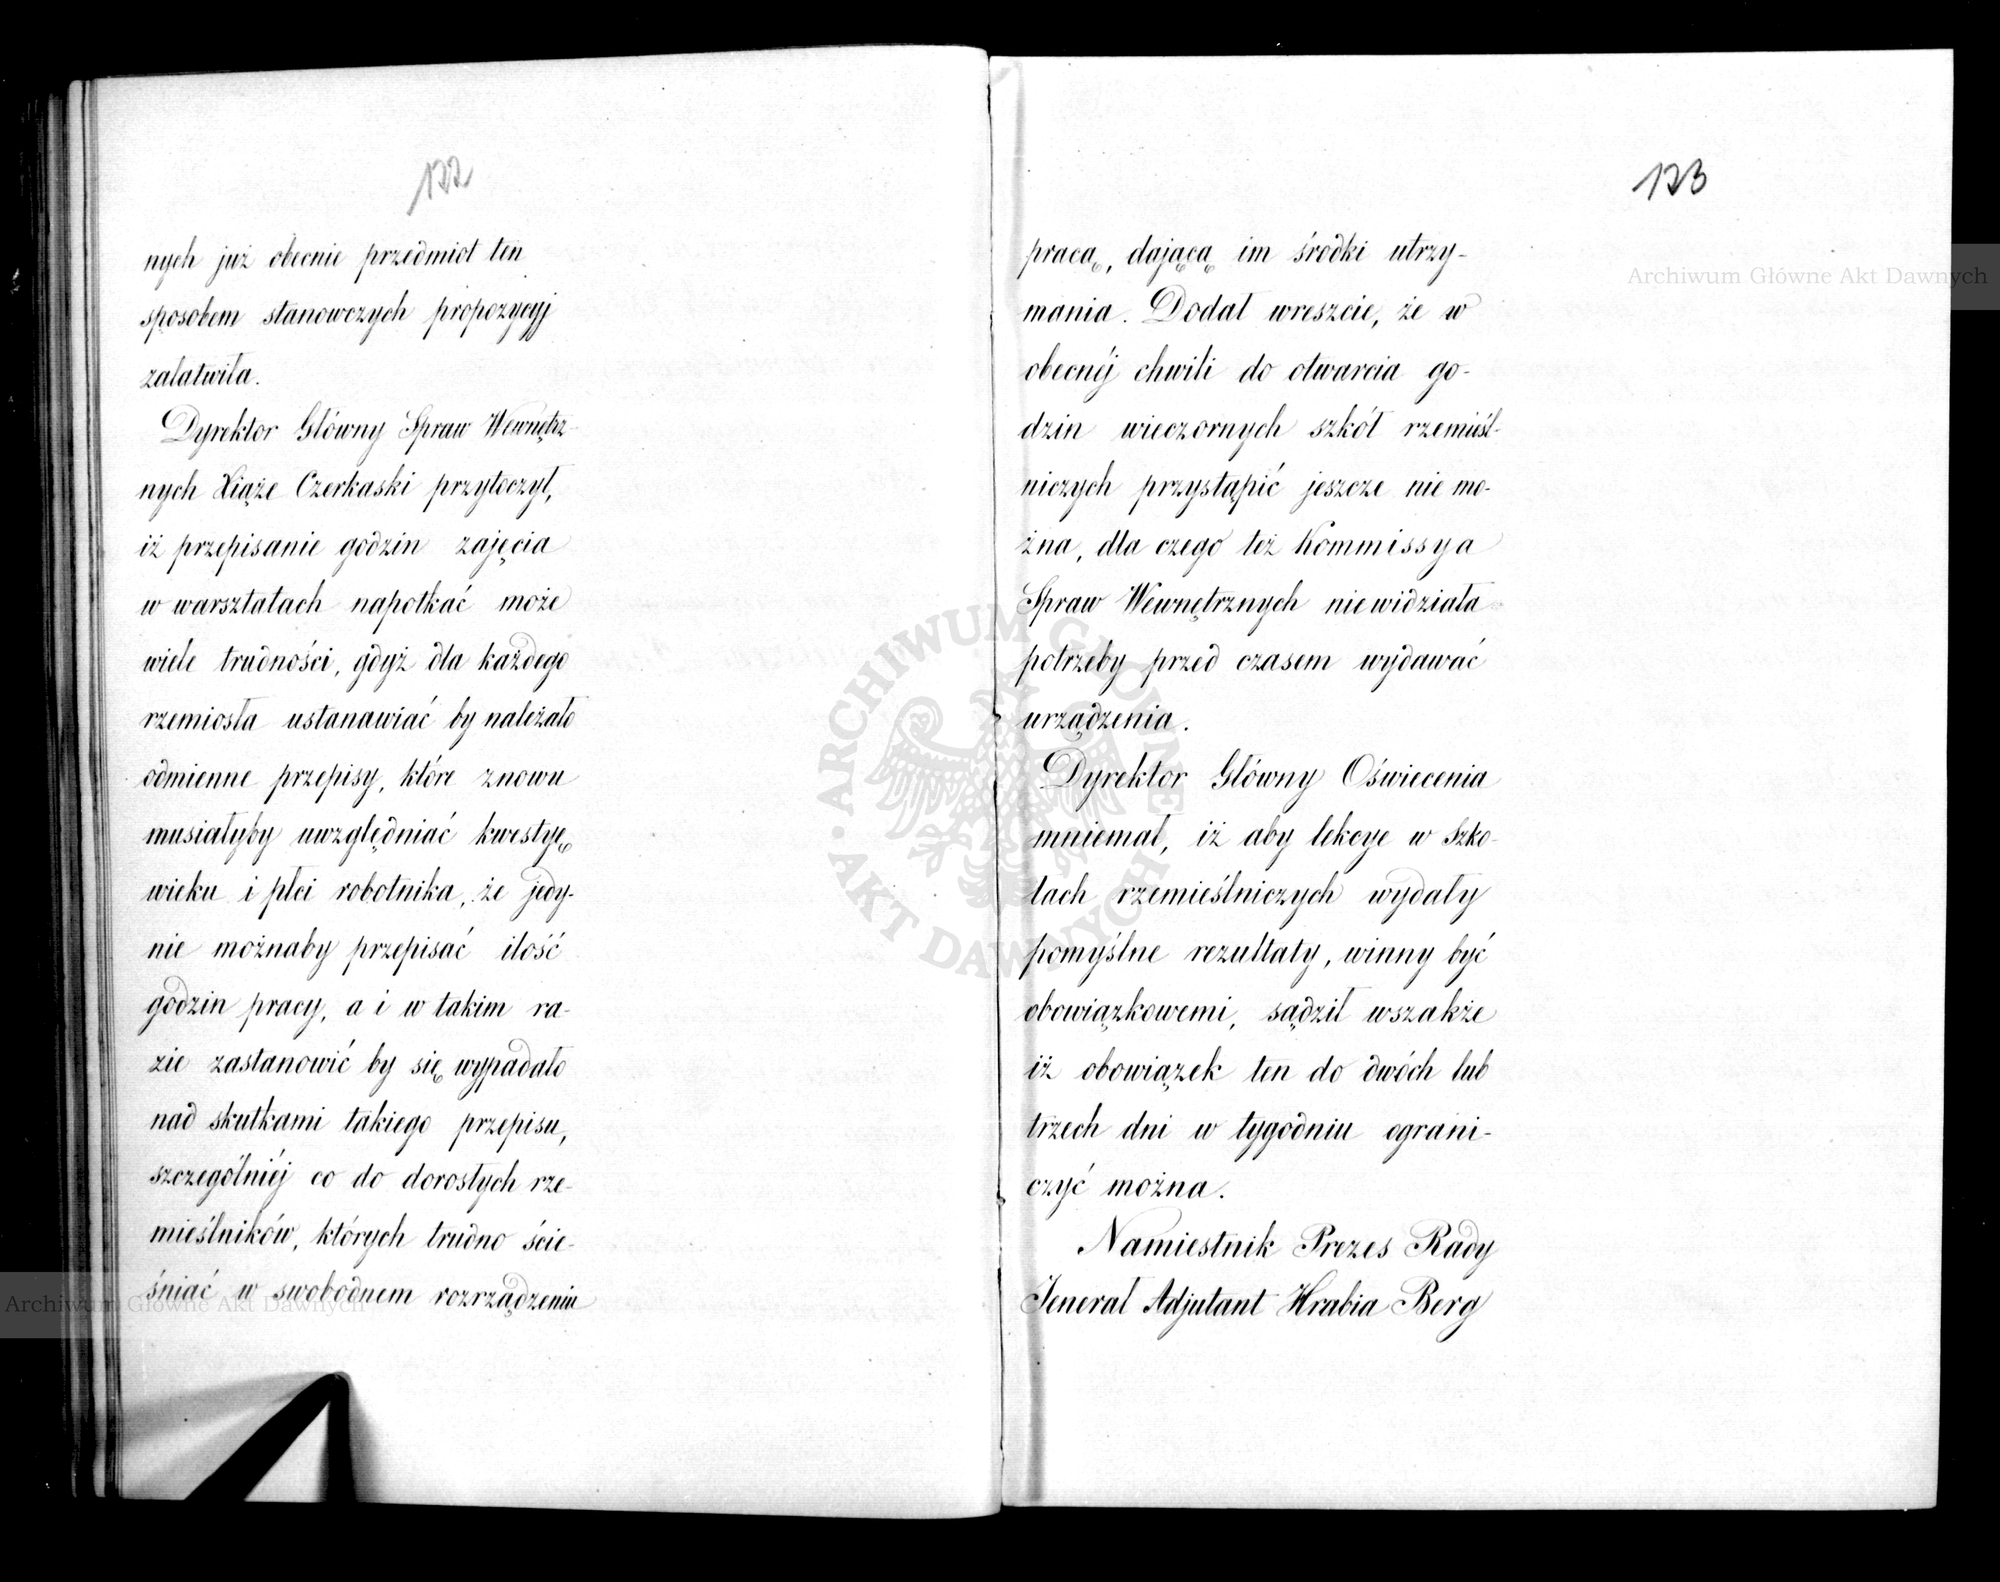 122
nych już obecnie przedmiot ten
sposobem stanowczych propozycyj
załatwiła.
Dyrektor Główny Spraw Wewnętrz-
nych Xiąże Czerkaski przytoczył,
iż przepisanie godzin zajęcia
w warsztatach napotkać może
wiele trudności, gdyż dla każdego
rzemiosła ustanawiać by należało
odmienne przepisy, które znowu
musiałyby uwzględniać kwestyę
wieku i płci robotnika, że jedy-
nie możnaby przepisać ilość
godzin pracy, a i w takim ra-
zie zastanowić by się wypadało
nad skutkami takiego przepisu,
szczególniéj co do dorosłych rze-
mieślników, których trudno ście-
śniać w swobodnem rozrządzeniu
123
pracą, dającą im środki utrzy-
mania. Dodał wreszcie, że w
obecnéj chwili do otwarcia go-
dzin wieczornych szkół rzemieśl-
niczych przystąpić jeszcze nie mo-
żna, dla czego też Kommissya
Spraw Wewnętrznych niewidziała
potrzeby przed czasem wydawać
urządzenia.
Dyrektor Główny Oświecenia
mniemał, iż aby lekcye w szko-
łach rzemieślniczych wydały
pomyślne rezultaty, winny być
obowiązkowemi, sądził wszakże
iż obowiązek ten do dwóch lub
trzech dni w tygodniu ograni-
czyć można.
Namiestnik Prezes Rady
Jenerał Adjutant Hrabia Berg
Archiwum Główne Akt Dawnych
ARCHIWUM GŁÓWNE AKT DAWNYCH
Archiwum Główne Akt Dawnych